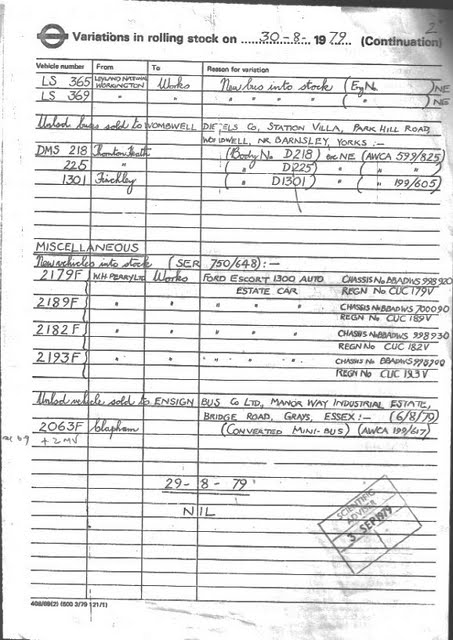 2
Variations in rolling stock on 30-8-1979 (Continuation)
Vehicle number From To Reason for variation
LS 365 LEYLAND NATIONAL WORKINGTON Works New bus into stock (Eng No ) NE
LS 369 " " " " " " ( " ) NE
Unlsd buses sold to WOMBWELL DIESELS CO, STATION VILLA, PARK HILL ROAD,
WOMBWELL, NR BARNSLEY, YORKS :-
DMS 218 Thornton Heath (Body No D218) NE (AWCA 599/825)
225 " ( " D225) " ( " " )
1301 Finchley ( " D1301) " ( " 199/605)
MISCELLANEOUS
New vehicles into stock (SER 750/648) :-
2179F W.H. PERRY LTD Works FORD ESCORT 1300 AUTO CHASSIS No BBADWS 998920
ESTATE CAR REGN No CUC 179V
2189F " " " " " CHASSIS No BBADWS 700090
REGN No CUC 189V
2182F " " " " " CHASSIS No BBADWS 998930
REGN No CUC 182V
2193F " " " " " CHASSIS No BBADWS
REGN No CUC 193V
Unlsd vehicle sold to ENSIGN BUS CO LTD, MANOR WAY INDUSTRIAL ESTATE,
BRIDGE ROAD, GRAYS, ESSEX :- (6/8/79)
2063F Clapham (CONVERTED MINI-BUS) (AWCA 199/617)
+ 2 MV
29-8-79
NIL
SCIENTIFIC
ADVISER
3 SEP 1979